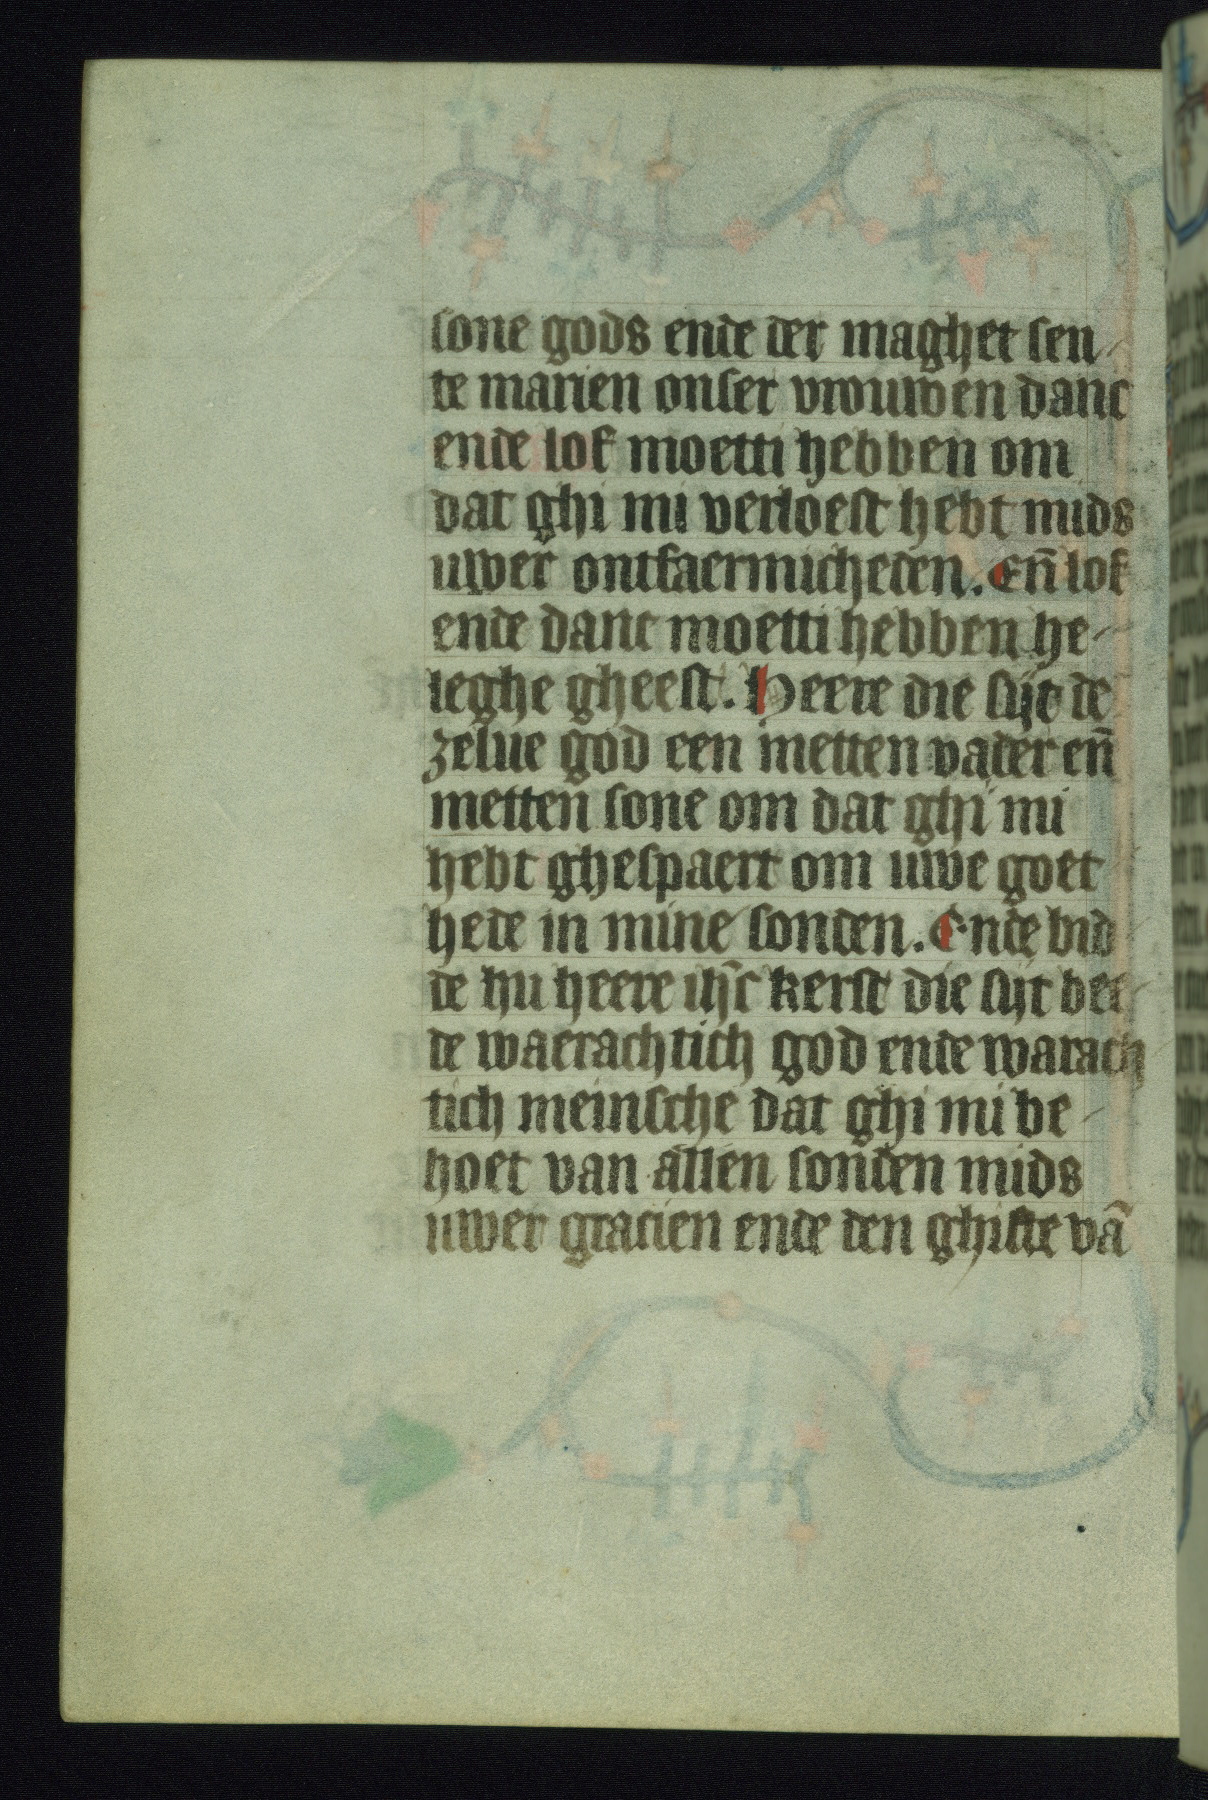 sone gods ende der maghet sen-
te marien onser vrouwen danc
ende lof moetti hebben om
dat ghi mi verloest hebt mids
uwer ontfaermicheden. En̄ lof
ende danc moetti hebben he-
leghe gheest. Heere die sijt de
zelue god een metten vader en̄
metten sone om dat ghi mi
hebt ghespaert om uwe goet
hede in mine sonden. Ende bid
de hu heere ih̄c kerst die sijt bee-
de waerachtich god ende warach
tich meinsche dat ghi mi be-
hoet van allen sonden mids
uwer gracien ende den ghiste vā